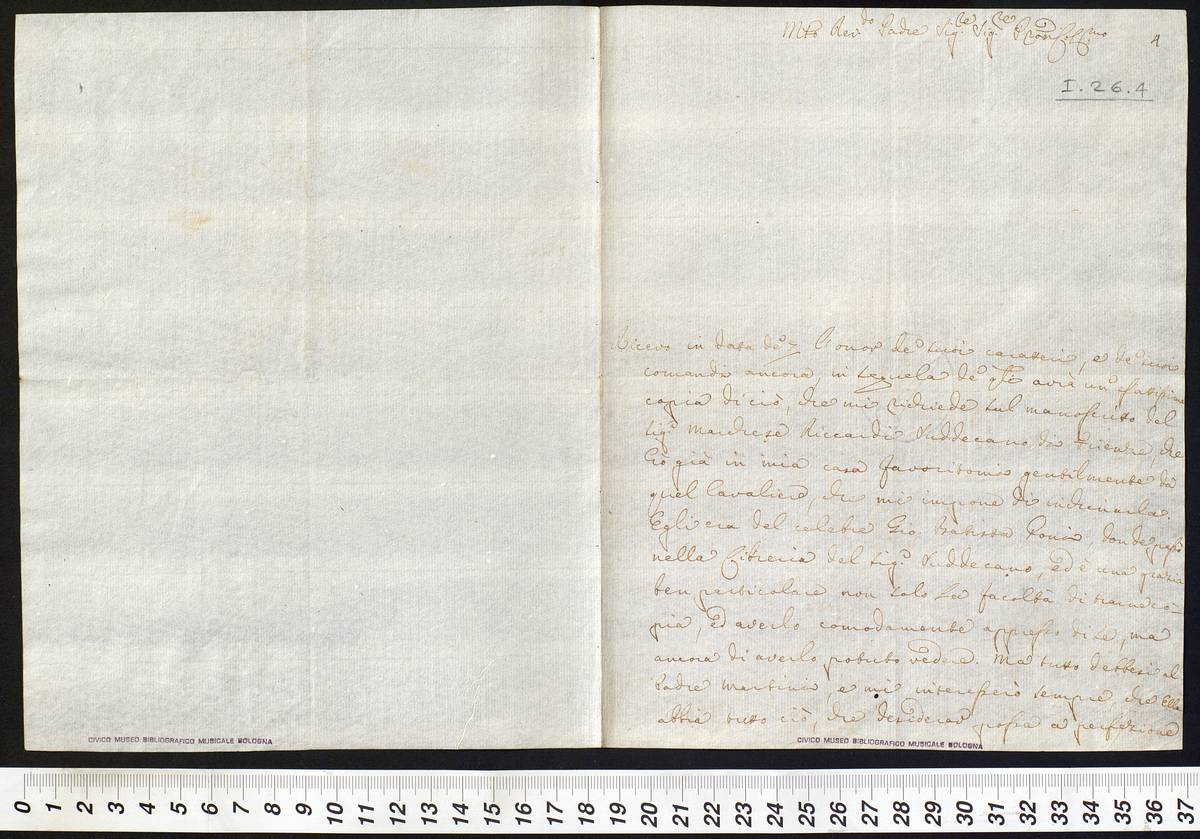 Mto Rev.do Padre Sig.re Sig.re Pron Col.mo
4
I.26.4
Ricevo in data de 7 l'onor de suoi carateri, e de suoi
comandi ancora, in sequela de qli avrà un esatissima
copia di ciò, che mi richiede sul manoscrito del
Sig.e Marchese Riccardi Suddecano di Firenze, che
ò già in mia casa favoritomi gentilmente da
quel Cavaliere, che mi impone di inchinarla.
Egli era del celebre Gio. Batista Doni, donde passò
nella Libreria del Sig.e Suddecano, ed è una grazia
ben particolare non solo la facoltà di trarne co-
pia, ed averlo comodamente appresso di se, ma
ancora di averlo potuto vedere. Ma tuto debbesi al
Padre Martini, e mi interesserò sempre, che Ella
abbia tuto ciò, che desiderar possa a perfezione
CIVICO MUSEO BIBLIOGRAFICO MUSICALE BOLOGNA
CIVICO MUSEO BIBLIOGRAFICO MUSICALE BOLOGNA
0 1 2 3 4 5 6 7 8 9 10 11 12 13 14 15 16 17 18 19 20 21 22 23 24 25 26 27 28 29 30 31 32 33 34 35 36 37